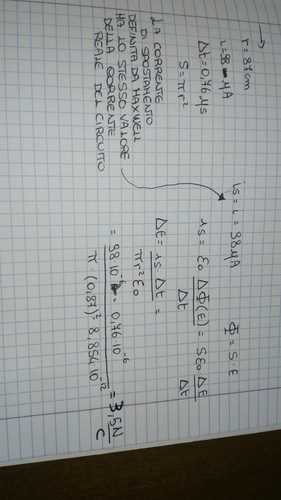 →
r = 87 cm
i = 8 μA
Δt = 0,76 μs
S = π r²
LA CORRENTE
DI SPOSTAMENTO
DEFINITA DA MAXWELL
HA LO STESSO VALORE
DELLA CORRENTE
REALE DEL CIRCUITO
is = i = 98 μA
Φ = S E
is = ε₀ ΔΦ(E) / Δt = S ε₀ ΔE / Δt
ΔE = is · Δt / π r² ε₀ =
= 98 10⁻⁶ · 0,76 10⁻⁶ / π (0,87)² 8,854 10⁻¹² = 3,5 N/C